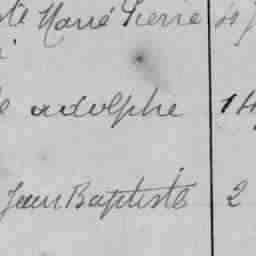 té Marie Pierre
adolphe 14
Jean Baptiste 2